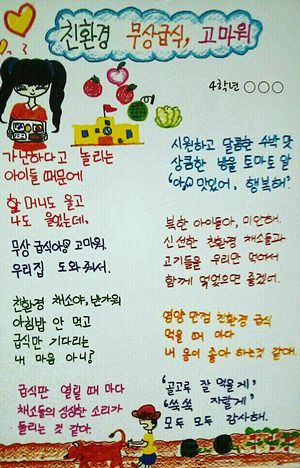 친환경 무상급식, 고마워
4학년 ○○○
가난하다고 놀리는
아이들 때문에
할머니도 울고
나도 울었는데,
무상 급식아 고마워.
우리집 도와줘서.
친환경 채소야, 반가워
아침밥 안 먹고
급식만 기다리는
내 마음 아니?
급식판 열릴 때 마다
채소들의 싱싱한 소리가
들리는 것 같다.
시원하고 달콤한 수박 맛
상큼한 방울 토마토 알
맛있어, 행복해"
북한 아이들아, 미안해.
신선한 친환경 채소들과
고기들을 우리만 먹어서
함께 먹었으면 좋겠어.
영양 만점 친환경 급식
먹을 때 마다
내 몸이 좋아 하는것 같애.
"골고루 잘 먹을게"
"쑥쑥 자랄게"
모두 모두 감사해.